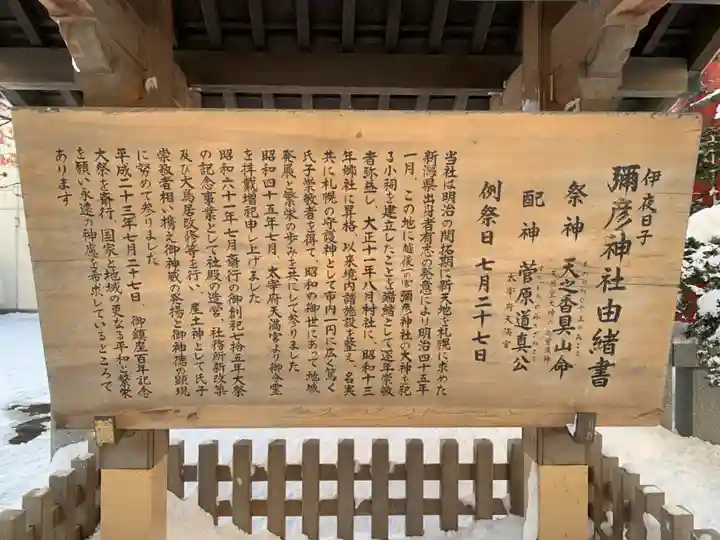 伊夜日子
彌彦神社由緒書
祭神 天之香具山命
配神 菅原道真公
太宰府天満宮
例祭日 七月二十七日
当社は明治の開拓期に新天地を札幌に求めた
新潟県出身者有志の発意により明治四十五年
一月、この地に越後一の宮彌彦神社の大神を祀
る小祠を建立したことを端緒として逐年崇敬
者弥益し、大正十一年八月村社に、昭和十三
年郷社に昇格、以来境内諸施設を整え、名実
共に札幌の守護神として市内一円に広く篤く
氏子崇敬者を得て、昭和の御世にあって地域
発展と繁栄の歩みを共にして参りました
昭和四十五年七月、太宰府天満宮より御分霊
を拝戴増祀申し上げました
昭和六十一年七月斎行の御創祀七拾五年大祭
の記念事業として社殿の造営、社務所新改築
及び大鳥居改修等を行い、産土神として氏子
崇敬者相い携え御神威の発揚と御神徳の顕現
に努めて参りました
平成二十三年七月二十七日、御鎮座百年記念
大祭を斎行、国家と地域の更なる平和と繁栄
を願い永遠の神慮を希求しているところで
あります